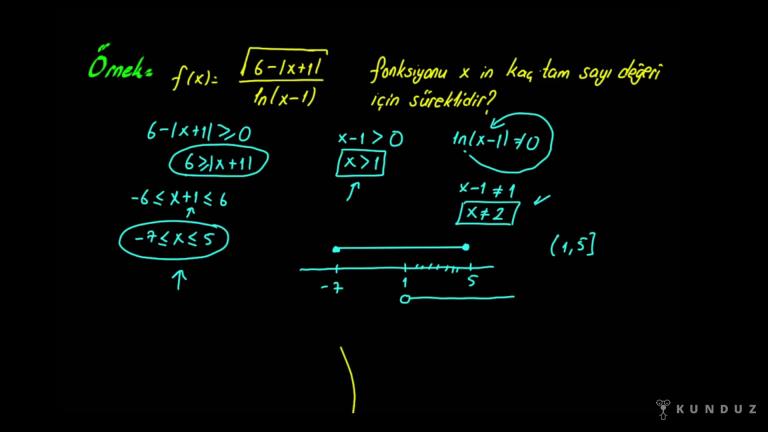 Örnek= f(x)= √(6-|x+1|) / ln(x-1) fonksiyonu x in kaç tam sayı değeri
için süreklidir?
6-|x+1| ≥ 0
6 ≥ |x+1|
-6 ≤ x+1 ≤ 6
-7 ≤ x ≤ 5
x-1 > 0
x > 1
ln(x-1) ≠ 0
x-1 ≠ 1
x ≠ 2
(1,5]
-7 1 5
KUNDUZ